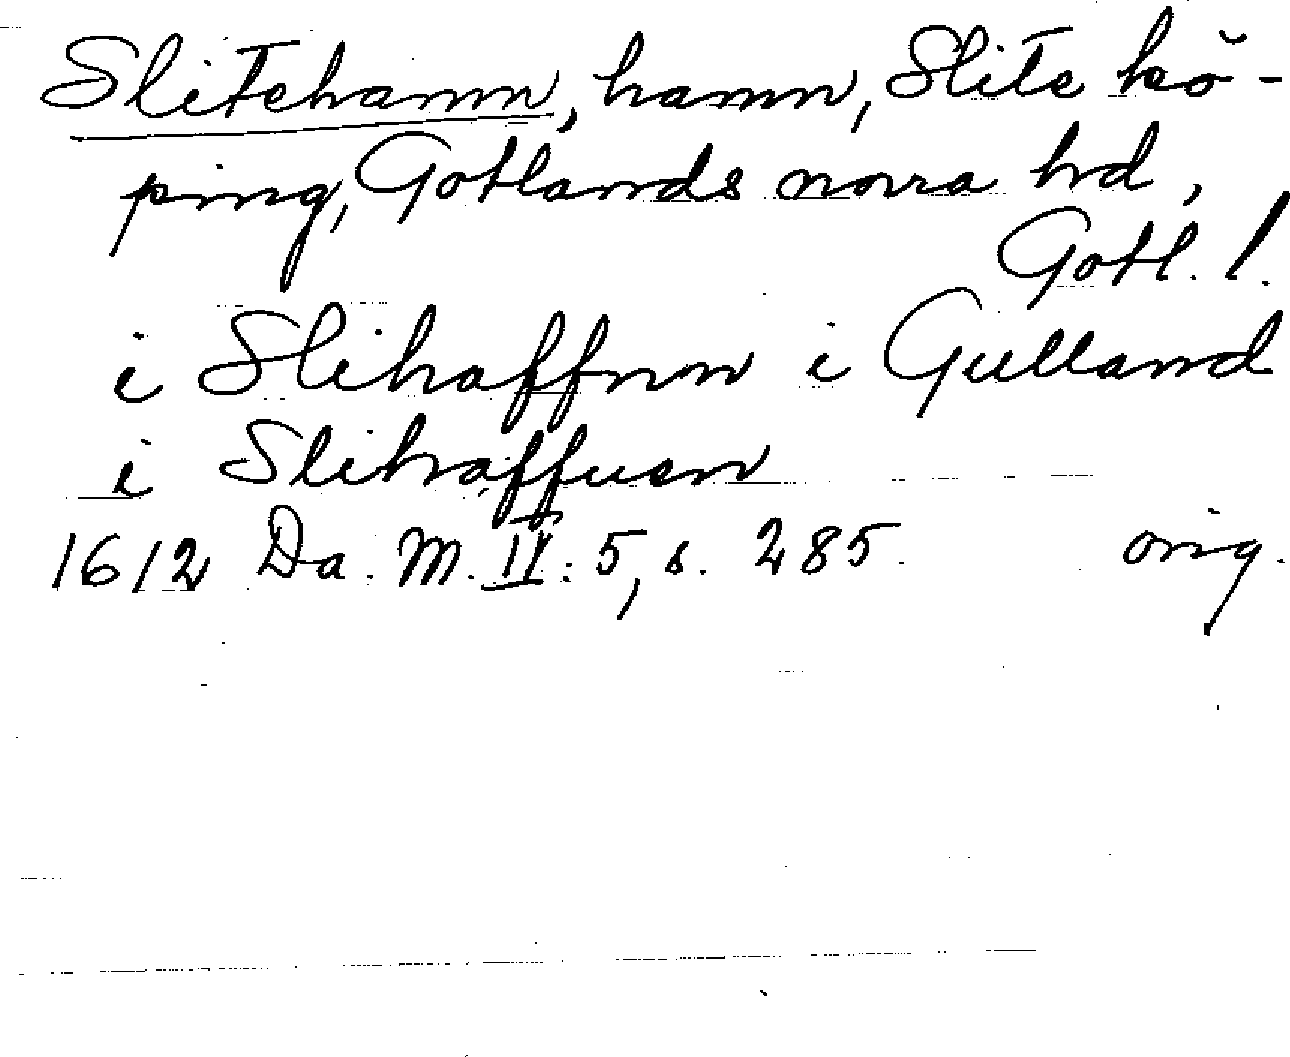 Slitehamn, hamn, Slite kö-
ping, Gotlands norra hd,
Gotl. l.
i Slihaffnn i Gulland
i Slihaffuen
1612 Da. M. IV: 5, s. 285. orig.